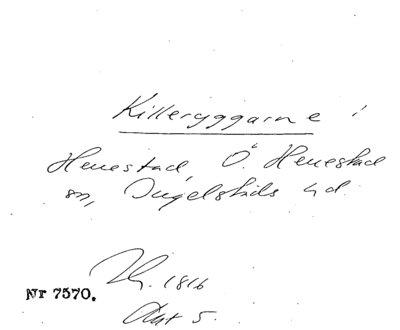 Killeryggarne i
Henestad, Ö. Henestad
sn, Ingelstads hd.
Lh. 1816
Nr 7570.
Akt 5.